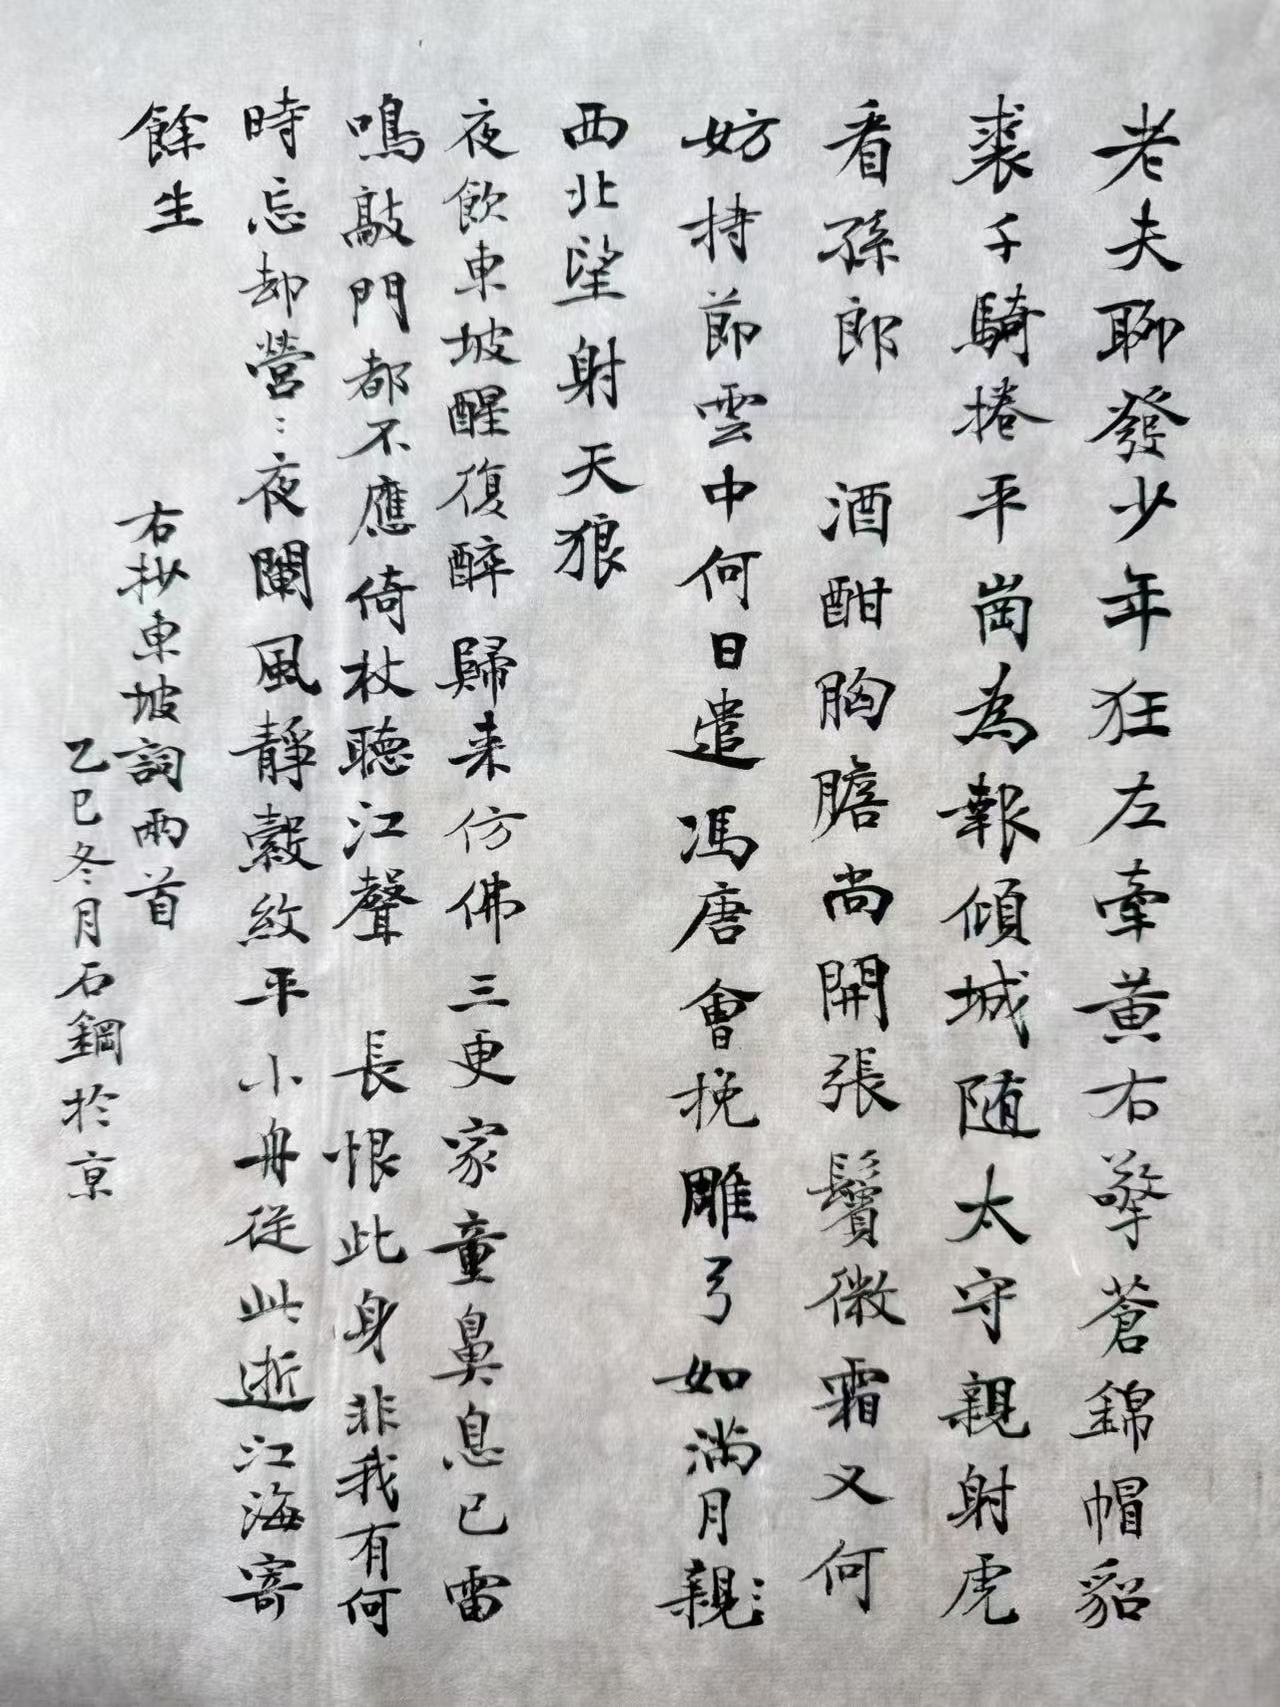 老夫聊發少年狂左牽黃右擎蒼錦帽貂
裘千騎捲平崗為報傾城随太守親射虎
看孫郎 酒酣胸膽尚開張鬢微霜又何
妨持節雲中何日遣馮唐會挽雕弓如滿月親〻
西北望射天狼
夜飲東坡醒復醉歸来仿佛三更家童鼻息已雷
鳴敲門都不應倚杖聽江聲 長恨此身非我有何
時忘却營〻夜闌風靜縠紋平小舟従此逝江海寄
餘生
右抄東坡詞兩首
乙巳冬月石鋼於京